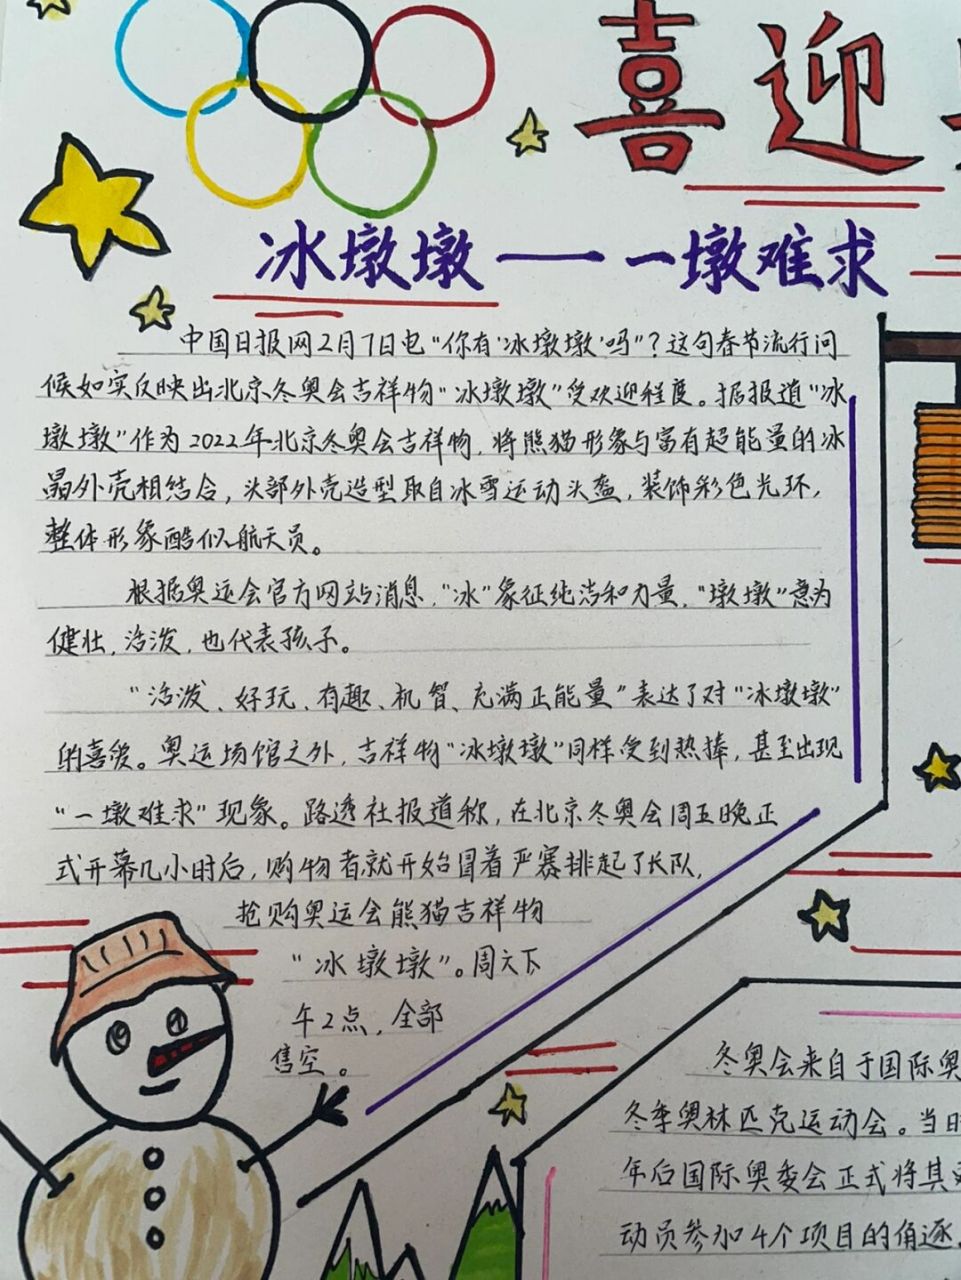 喜迎
冰墩墩——一墩难求
中国日报网2月7日电"你有'冰墩墩'吗"?这句春节流行问
候如实反映出北京冬奥会吉祥物"冰墩墩"受欢迎程度。据报道"冰
墩墩"作为2022年北京冬奥会吉祥物,将熊猫形象与富有超能量的冰
晶外壳相结合,头部外壳造型取自冰雪运动头盔,装饰彩色光环,
整体形象酷似航天员。
根据奥运会官方网站消息,"冰"象征纯洁和力量,"墩墩"意为
健壮,活泼,也代表孩子。
"活泼、好玩、有趣、机智、充满正能量"表达了对"冰墩墩"
的喜爱。奥运场馆之外,吉祥物"冰墩墩"同样受到热捧,甚至出现
"一墩难求"现象。路透社报道称,在北京冬奥会周五晚正
式开幕几小时后,购物者就开始冒着严赛排起了长队,
抢购奥运会熊猫吉祥物
"冰墩墩"。周六下
午2点,全部
售空。
冬奥会来自于国际奥
冬季奥林匹克运动会。当
年后国际奥委会正式将其
动员参加4个项目的角逐